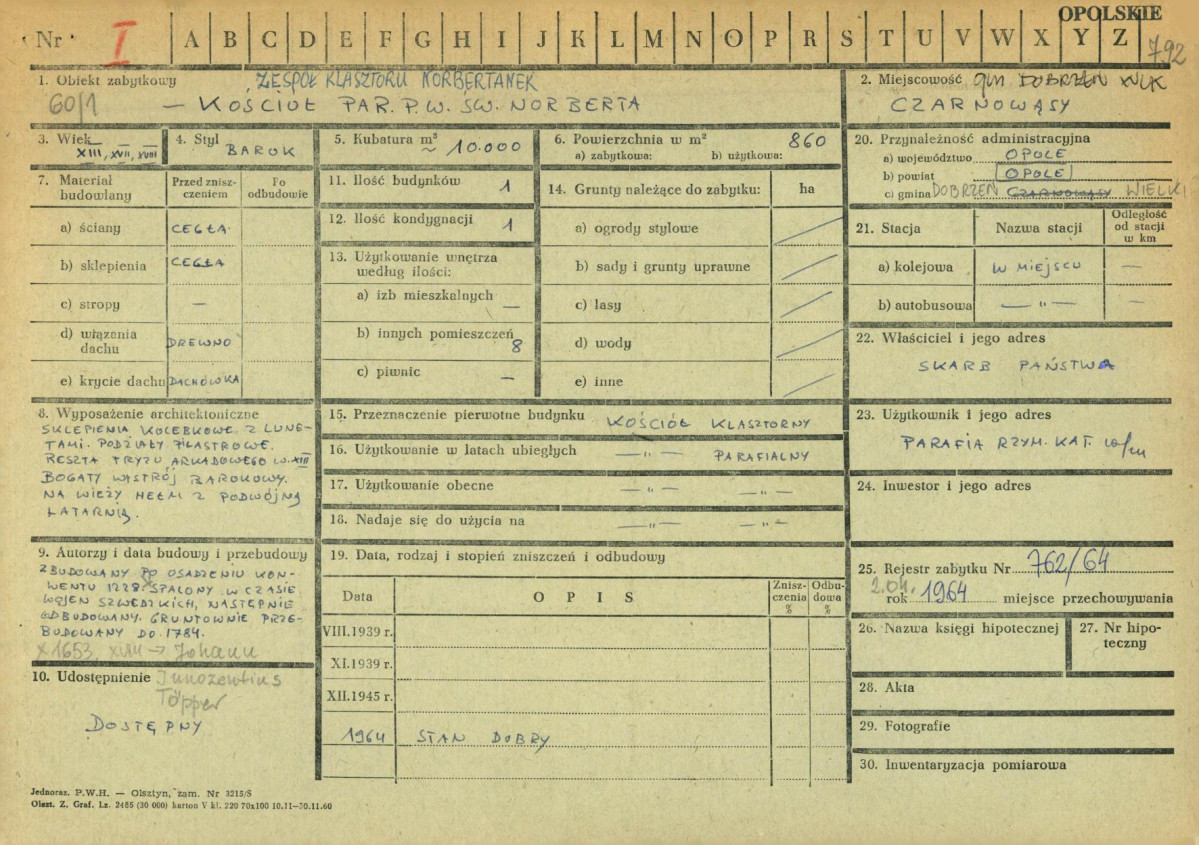 OPOLSKIE
Nr I A B C D E F G H I J K L M N O P R S T U V W X Y Z
792
1. Obiekt zabytkowy ZESPÓŁ KLASZTORU NORBERTANEK
60/1 — KOŚCIÓŁ PAR. P.W. ŚW. NORBERTA
2. Miejscowość gm DOBRZEŃ WLK
CZARNOWĄSY
3. Wiek XIII, XVII, XVIII
4. Styl BAROK
5. Kubatura m³ ~ 10.000
6. Powierzchnia w m² 860
a) zabytkowa: b) użytkowa:
7. Materiał budowlany
Przed zniszczeniem
Po odbudowie
a) ściany CEGŁA
b) sklepienia CEGŁA
c) stropy —
d) wiązania dachu DREWNO
e) krycie dachu DACHÓWKA
8. Wyposażenie architektoniczne
SKLEPIENIA KOLEBKOWE Z LUNE-
TAMI. PODZIAŁY PILASTROWE.
RESZTA FRYZU ARKADOWEGO W. XIII
BOGATY WYSTRÓJ BAROKOWY.
NA WIEŻY HEŁM Z PODWÓJNĄ
LATARNIĄ.
9. Autorzy i data budowy i przebudowy
ZBUDOWANY PO OSADZENIU KON-
WENTU 1228 SPALONY W CZASIE
WOJEN SZWEDZKICH, NASTĘPNIE
ODBUDOWANY. GRUNTOWNIE PRZE-
BUDOWANY DO 1784.
X 1653, XVIII → Johann
Innozentius
Töpper
10. Udostępnienie
DOSTĘPNY
11. Ilość budynków 1
12. Ilość kondygnacji 1
13. Użytkowanie wnętrza
według ilości:
a) izb mieszkalnych —
b) innych pomieszczeń 8
c) piwnic —
14. Grunty należące do zabytku: ha
a) ogrody stylowe
b) sady i grunty uprawne
c) lasy
d) wody
e) inne
15. Przeznaczenie pierwotne budynku KOŚCIÓŁ KLASZTORNY
16. Użytkowanie w latach ubiegłych —"— PARAFIALNY
17. Użytkowanie obecne —"— —"—
18. Nadaje się do użycia na —"— —"—
19. Data, rodzaj i stopień zniszczeń i odbudowy
Data OPIS Zniszczenia % Odbudowa %
VIII.1939 r.
XI.1939 r.
XII.1945 r.
1964 STAN DOBRY
20. Przynależność administracyjna
a) województwo OPOLE
b) powiat OPOLE
c) gmina DOBRZEŃ CZARNOWĄSY WIELKI
21. Stacja Nazwa stacji Odległość od stacji w km
a) kolejowa W MIEJSCU —
b) autobusowa —"— —
22. Właściciel i jego adres
SKARB PAŃSTWA
23. Użytkownik i jego adres
PARAFIA RZYM. KAT. w/m
24. Inwestor i jego adres
25. Rejestr zabytku Nr 762/64
2.04. rok 1964 miejsce przechowywania
26. Nazwa księgi hipotecznej
27. Nr hipoteczny
28. Akta
29. Fotografie
30. Inwentaryzacja pomiarowa
Jednoraz. P.W.H. — Olsztyn, zam. Nr 3215/S
Olszt. Z. Graf. Lz. 2485 (30 000) karton V kl. 220 70x100 10.11—30.11.60